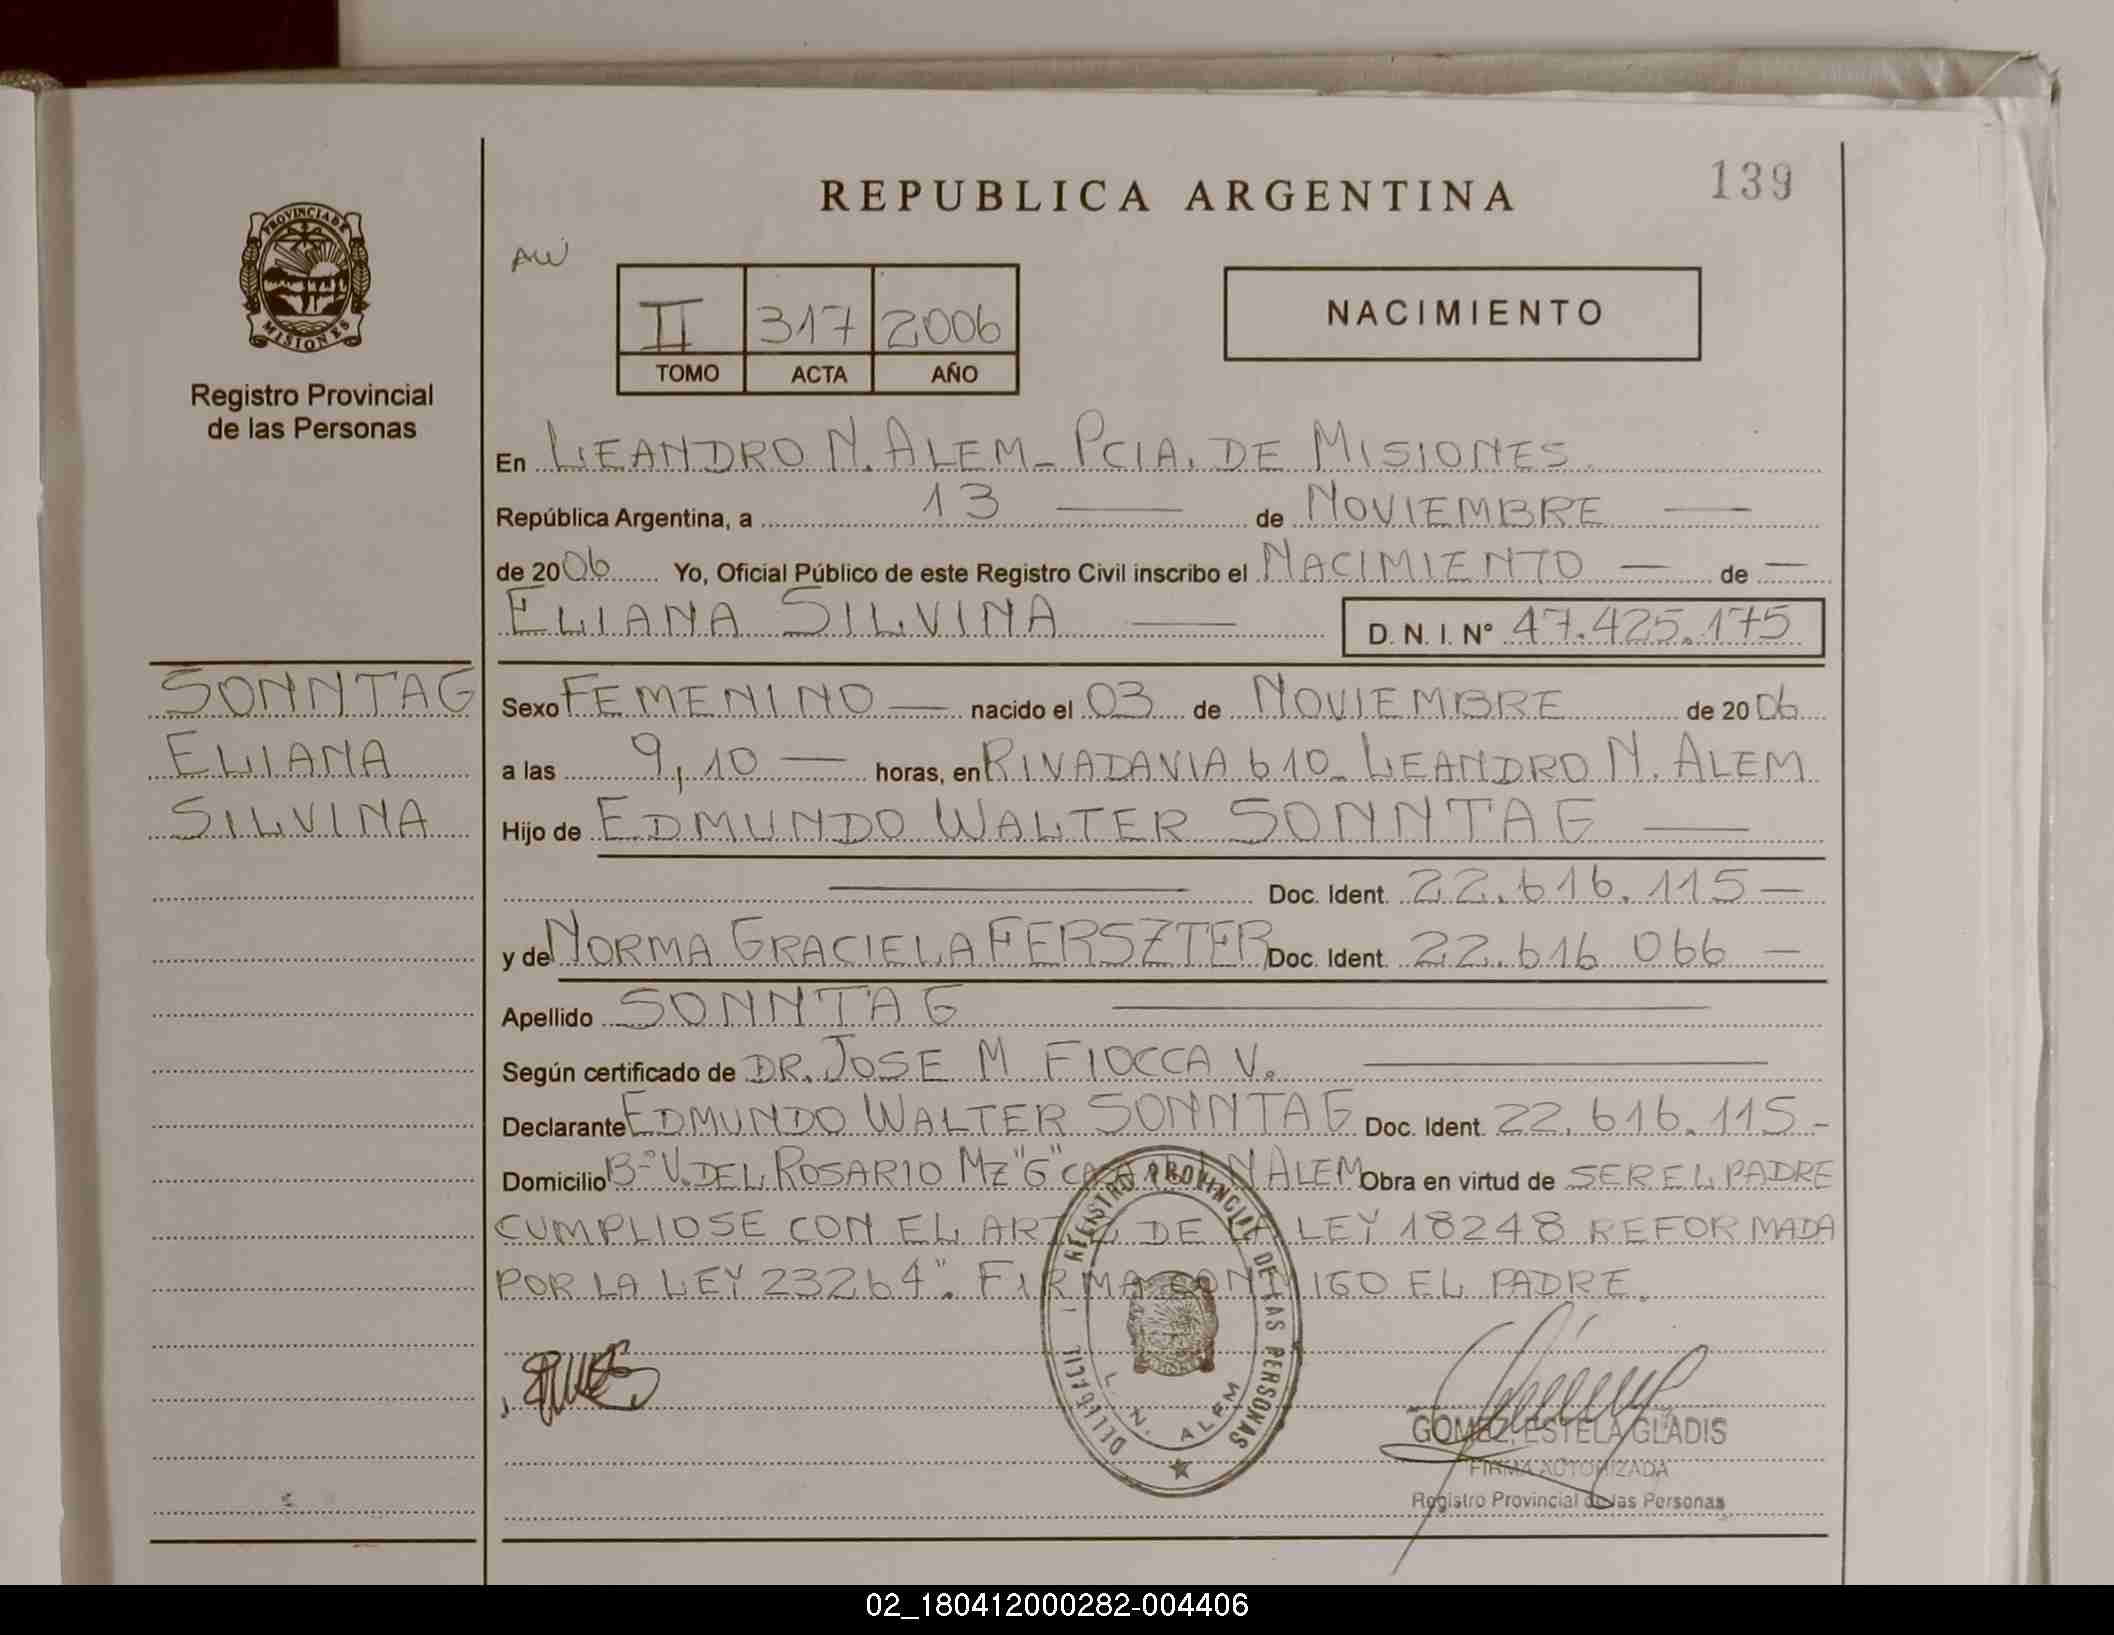 REPUBLICA ARGENTINA
139
PROVINCIA DE
MISIONES
Registro Provincial
de las Personas
AW
II 317 2006
TOMO ACTA AÑO
NACIMIENTO
En LEANDRO N. ALEM - PCIA. DE MISIONES
República Argentina, a 13 — de NOVIEMBRE —
de 2006 Yo, Oficial Público de este Registro Civil inscribo el NACIMIENTO — de —
ELIANA SILVINA —
D. N. I. N° 47.425.175
SONNTAG
ELIANA
SILVINA
Sexo FEMENINO — nacido el 03 de NOVIEMBRE de 2006
a las 9,10 — horas, en RIVADAVIA 610 - LEANDRO N. ALEM
Hijo de EDMUNDO WALTER SONNTAG —
— Doc. Ident. 22.616.115 —
y de NORMA GRACIELA FERSZTER Doc. Ident. 22.616 066 —
Apellido SONNTAG —
Según certificado de DR. JOSE M FIOCCA V. —
Declarante EDMUNDO WALTER SONNTAG Doc. Ident. 22.616.115 -
Domicilio B° V. DEL ROSARIO MZ "G" CASA N ALEM Obra en virtud de SER EL PADRE
CUMPLIOSE CON EL ART DE LA LEY 18248 REFORMADA
POR LA LEY 23264". FIRMA CONMIGO EL PADRE.
REGISTRO PROVINCIAL DE LAS PERSONAS
L. N. ALEM
GOMEZ, ESTELA GLADIS
FIRMA AUTORIZADA
Registro Provincial de las Personas
02_180412000282-004406